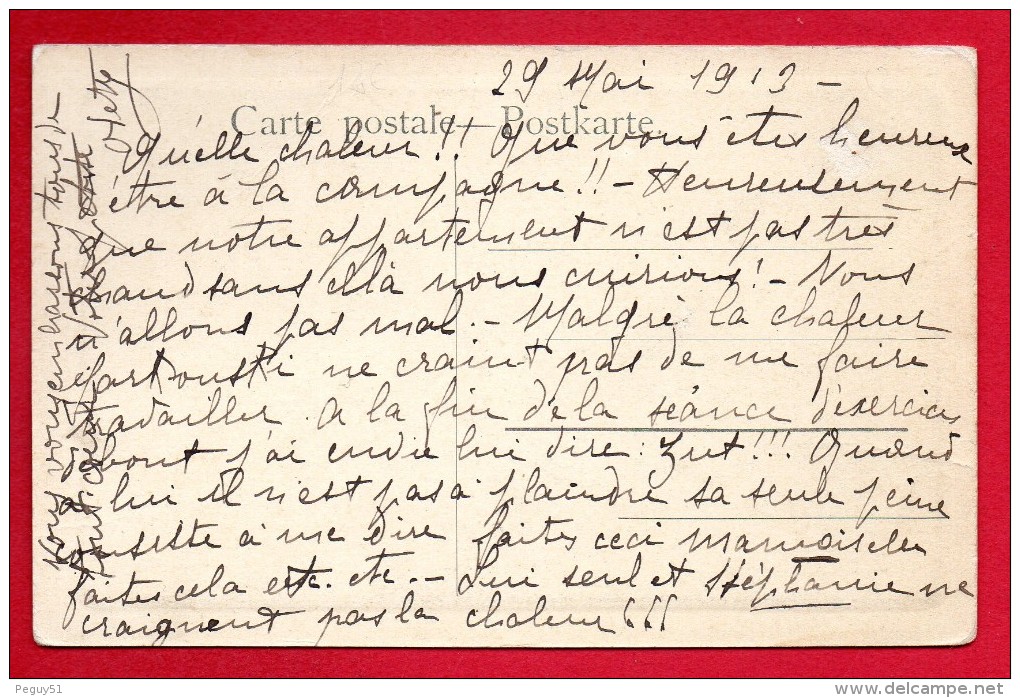 29 Mai 1913 -
Carte postale — Postkarte
Qu'elle chaleur!! Que vous êtes heureux
d'être à la campagne!! - Heureusement
que notre appartement n'est pas très
chaud sans cela nous cuirions! - Nous
n'allons pas mal. - Malgré la chaleur
ne craint pas de me faire
travailler. A la fin de la séance d'exercices
debout j'ai envie lui dire: Zut!!! Quand
à lui il n'est pas à plaindre sa seule peine
consiste à me dire faites ceci mamoiselle
faites cela etc. etc. - Lui seul et Stéphanie ne
craignent pas la chaleur!!!
Nous vous embrassons tous de
tout cœur Votre
Peguy51
www.delcampe.net